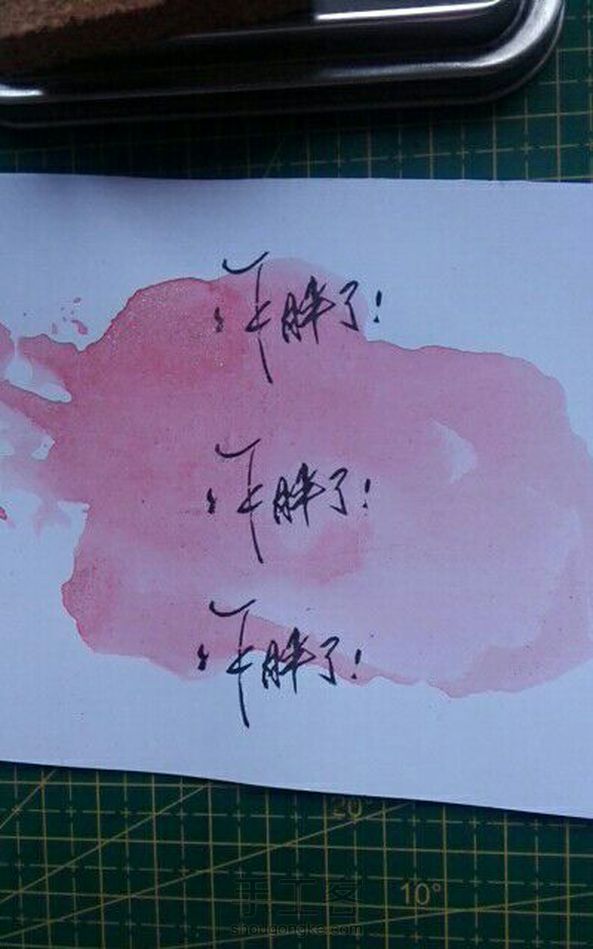 胖了!
胖了!
胖了!
20°
10°
手工客
shougongke.com